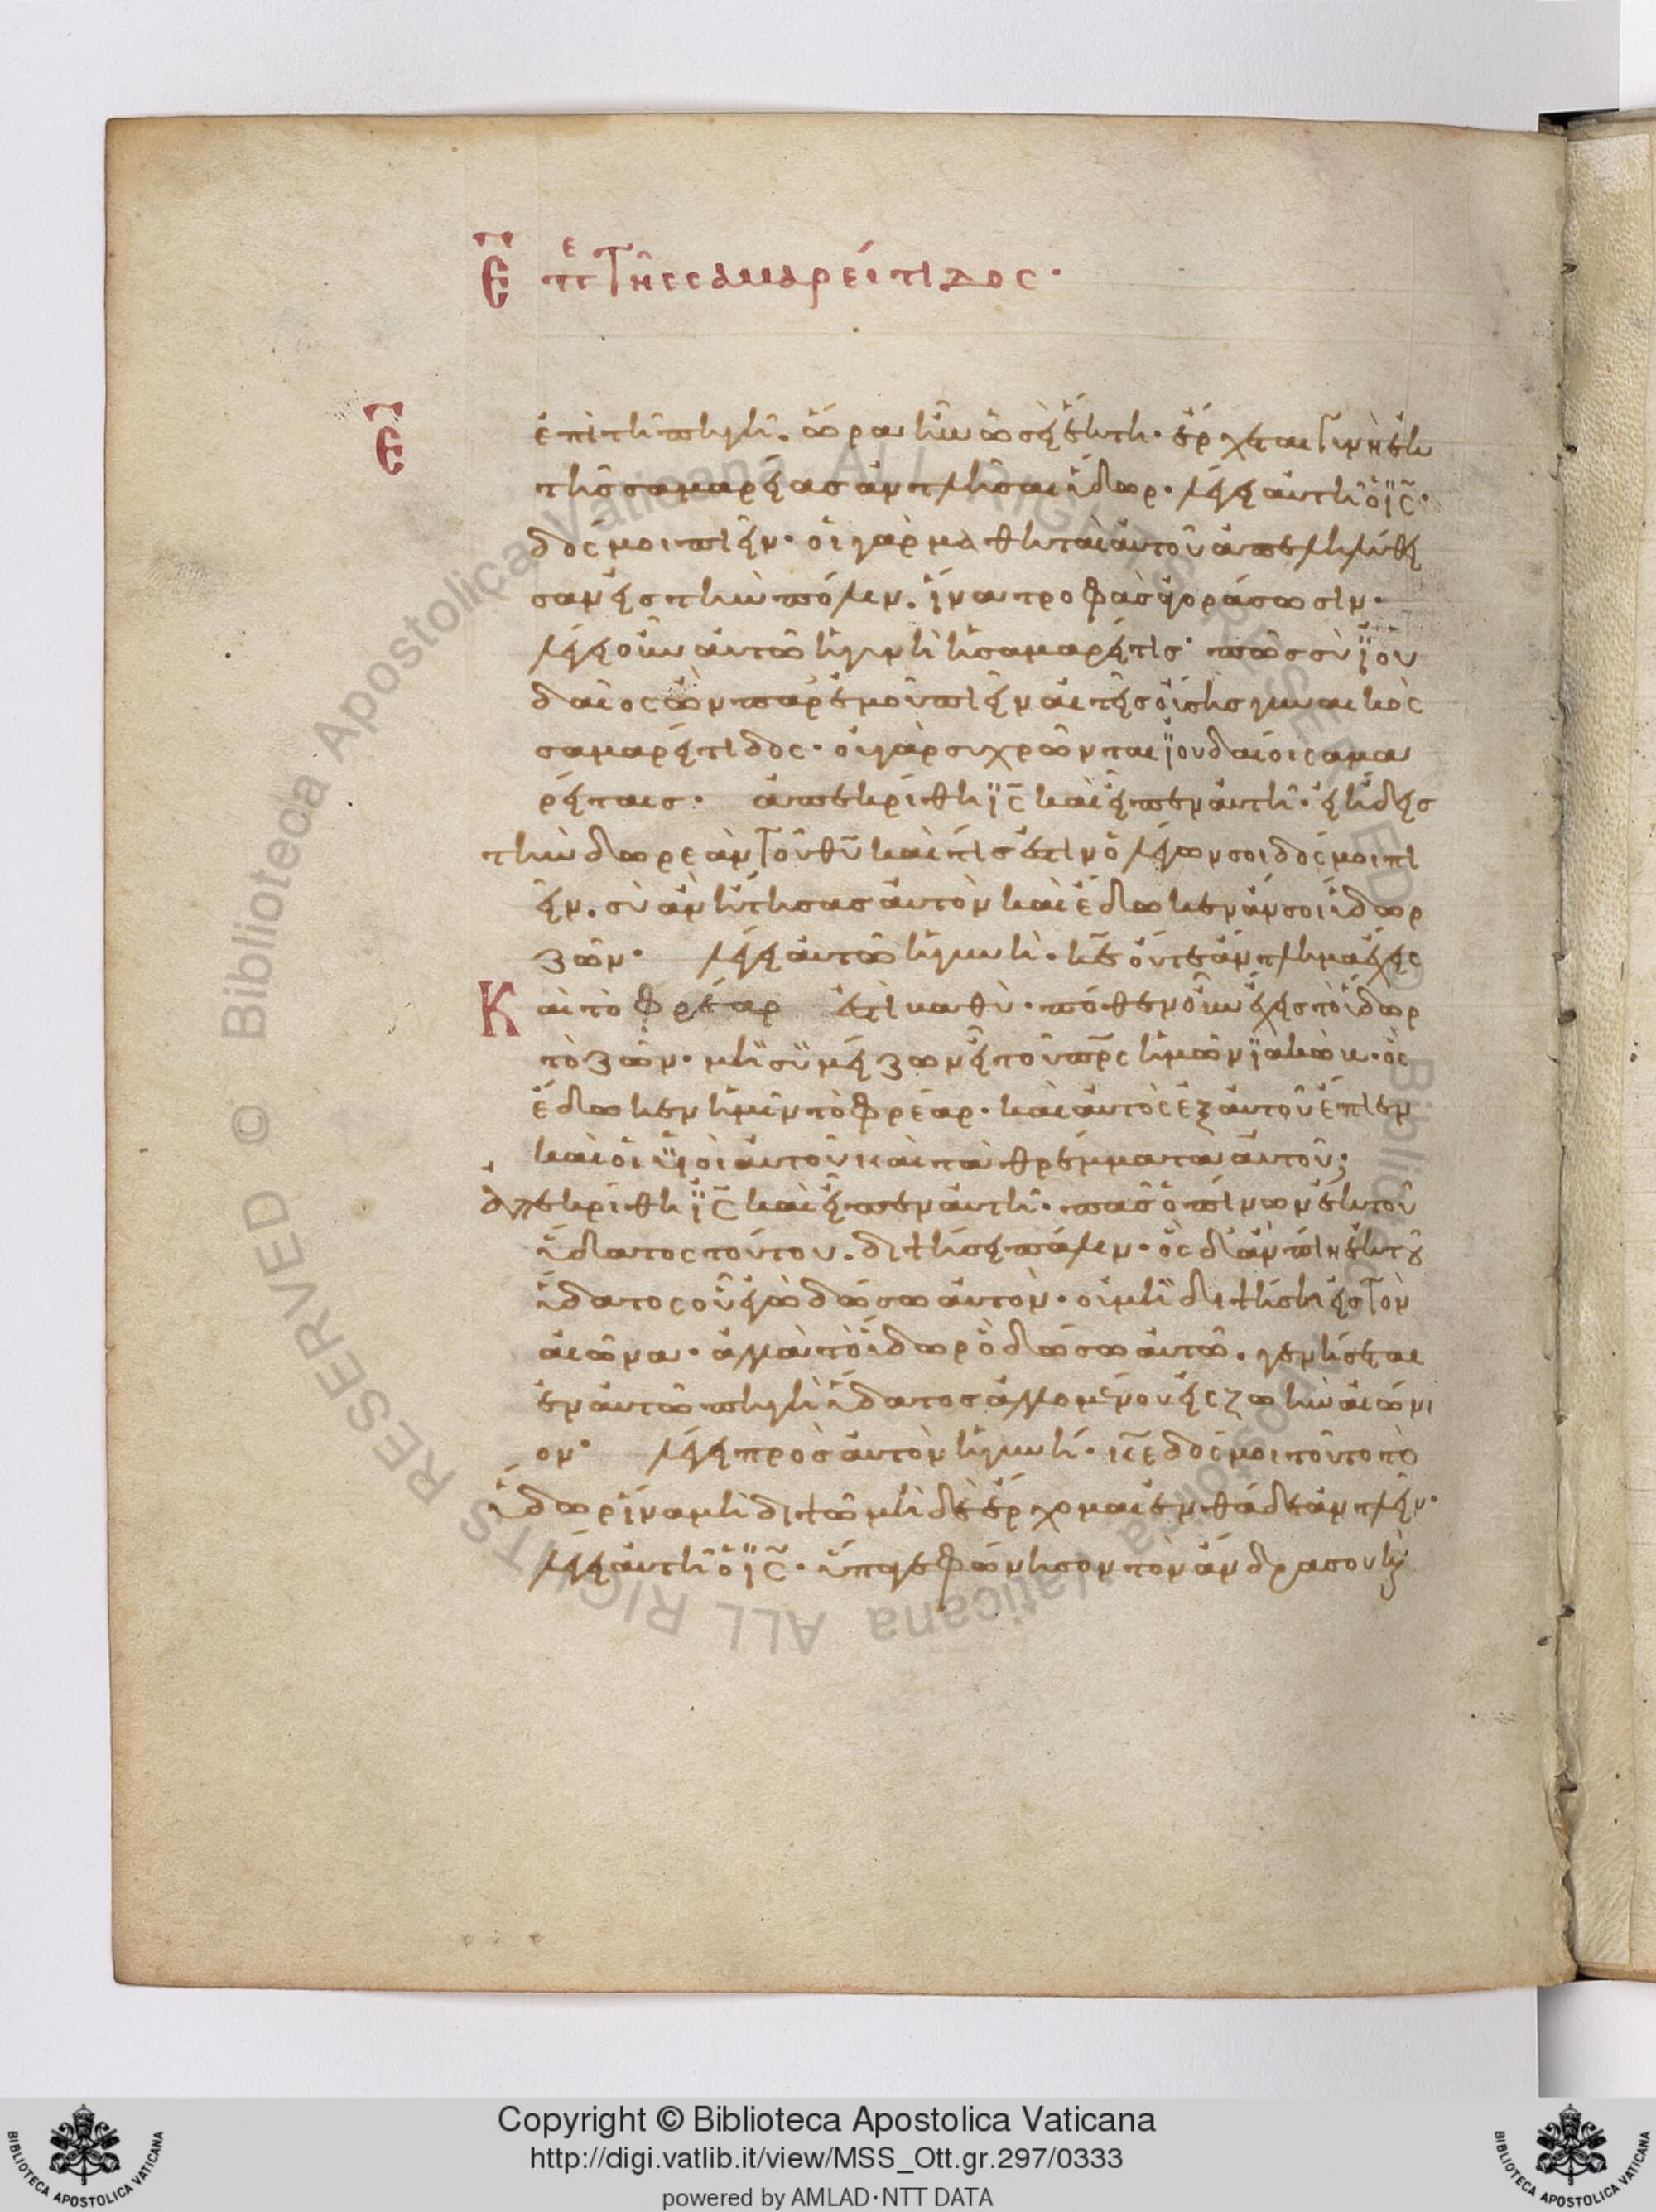 Ε πε τῆς σαμαρείτιδος·
Ε
ἐπὶ τῆ πηγῆ. ὥρα ἦν ὡσεὶ ἕκτη· ἔρχεται γυνὴ ἐκ
τῆς σαμαρείας ἀντλῆσαι ὕδωρ· λέγει αὐτῆ ὁ ις·
δός μοι πιεῖν· οἱ γὰρ μαθηταὶ αὐτοῦ ἀπεληλύθει
σαν εἰς τὴν πόλιν. ἵνα τροφὰς ἀγοράσωσιν·
λέγει οὖν αὐτῶ ἡ γυνὴ ἡ σαμαρείτις· πῶς σὺ ϊου
δαῖος ὢν παρ' ἐμοῦ πιεῖν αἰτεῖς οὔσης γυναικὸς
σαμαρείτιδος· οὐ γὰρ συγχρῶνται ϊουδαίοι σαμα
ρείταις· ἀπεκρίθη ις καὶ εἶπεν αὐτῆ· εἰ ἤδεις
τὴν δωρεὰν τοῦ θυ καὶ τίς ἐστιν ὁ λέγων σοι δός μοι πι
εῖν. σὺ ἂν ἤτησας αὐτὸν καὶ ἔδωκεν ἄν σοι ὕδωρ
ζῶν· λέγει αὐτῶ ἡ γυνὴ· κε οὔτε ἄντλημα ἔχεις
Καὶ τὸ φρέαρ ἐστὶ βαθὺ· πόθεν οὖν ἔχεις τὸ ὕδωρ
τὸ ζῶν· μὴ σὺ μείζων εἶ τοῦ πρς ἡμῶν ϊακὼβ· ὃς
ἔδωκεν ἡμῖν τὸ φρέαρ· καὶ αὐτὸς ἐξ αὐτοῦ ἔπιεν
καὶ οἱ υἱοὶ αὐτοῦ καὶ τὰ θρέμματα αὐτοῦ;
ἀπεκρίθη ις καὶ εἶπεν αὐτῆ· πᾶς ὁ πίνων ἐκ τοῦ
ὕδατος τούτου. διψήσει πάλιν· ὃς δ' ἂν πίη ἐκ του
ὕδατος οὗ ἐγὼ δώσω αὐτὸν· οὐ μὴ διψήση εἰς τὸν
αἰῶνα· ἀλλὰ τὸ ὕδωρ ὃ δώσω αὐτῶ. γενήσεται
ἐν αὐτῶ πηγὴ ὕδατος ἁλλομένου εἰς ζωὴν αἰώνι
ον· λέγει πρὸς αὐτὸν ἡ γυνή· κε δός μοι τοῦτο τὸ
ὕδωρ ἵνα μὴ διψῶ μὴ δὲ ἔρχομαι ἐνθάδε ἀντλεῖν·
λέγει αὐτῆ ὁ ις· ὕπαγε φώνησον τὸν ἄνδρα σου καὶ
Copyright © Biblioteca Apostolica Vaticana
http://digi.vatlib.it/view/MSS_Ott.gr.297/0333
powered by AMLAD·NTT DATA
BIBLIOTECA APOSTOLICA VATICANA
BIBLIOTECA APOSTOLICA VATICANA
© Biblioteca Apostolica Vaticana ALL RIGHTS RESERVED
© Biblioteca Apostolica Vaticana ALL RIGHTS RESERVED